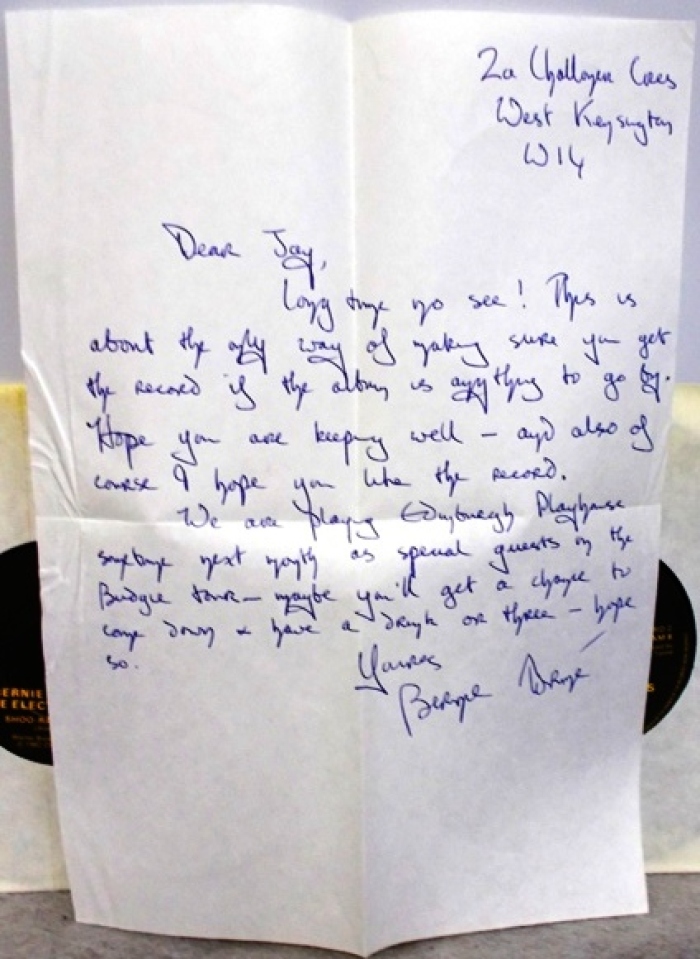 2a Challoner Cres
West Kensington
W14
Dear Jay,
Long time no see! This is
about the only way of making sure you get
the record if the albany is anything to go by.
Hope you are keeping well - and also of
course I hope you like the record.
We are playing Edinburgh Playhouse
sometime next month as special guests on the
Budgie tour - maybe you'll get a chance to
come down & have a drink or three - hope
so.
Yours
Bernie
BERNIE
E ELEC